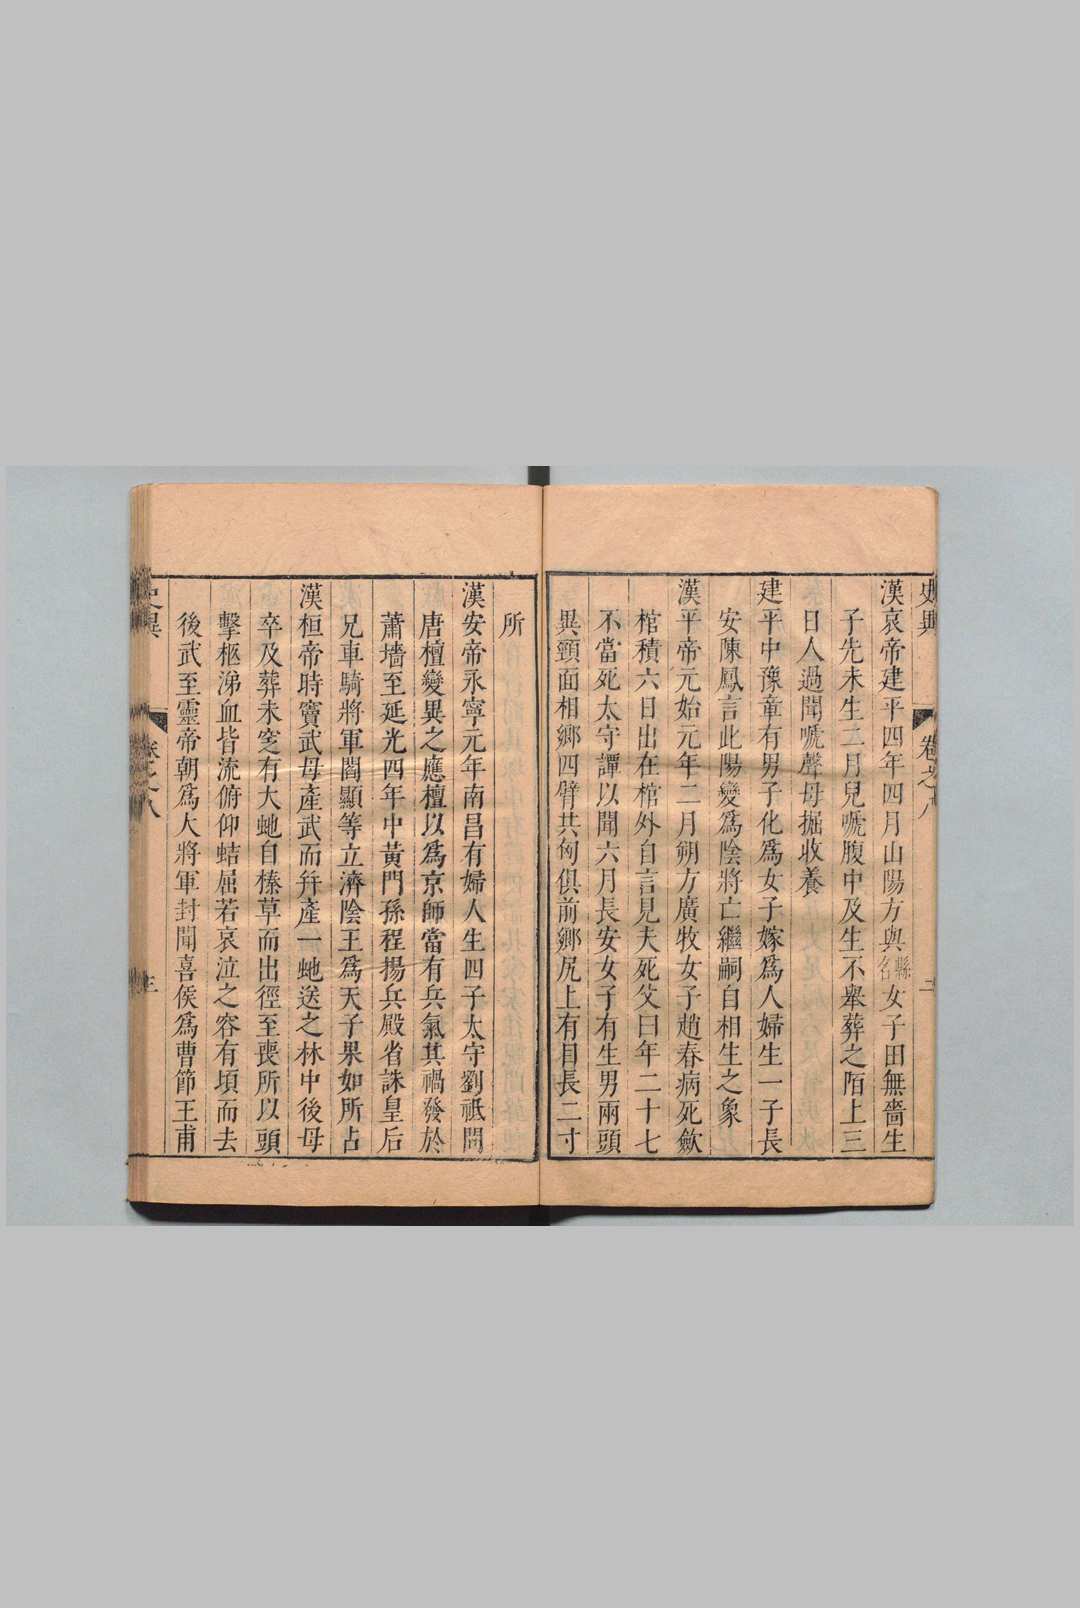 史異
卷之八
漢哀帝建平四年四月山陽方與縣名女子田無嗇生
子先未生二月兒嗁腹中及生不舉葬之陌上三
日人過聞嗁聲母掘收養
建平中豫章有男子化爲女子嫁爲人婦生一子長
安陳鳳言此陽變爲陰將亡繼嗣自相生之象
漢平帝元始元年二月朔方廣牧女子趙春病死斂
棺積六日出在棺外自言見夫死父曰年二十七
不當死太守譚以聞六月長安女子有生男兩頭
異頸面相鄉四臂共匈俱前鄉尻上有目長二寸
所
漢安帝永寧元年南昌有婦人生四子太守劉祗問
唐檀變異之應檀以爲京師當有兵氣其禍發於
蕭墻至延光四年中黃門孫程揚兵殿省誅皇后
兄車騎將軍閻顯等立濟陰王爲天子果如所占
漢桓帝時竇武母產武而幷產一虵送之林中後母
卒及葬未窆有大虵自榛草而出徑至喪所以頭
擊柩涕血皆流俯仰蛣屈若哀泣之容有頃而去
後武至靈帝朝爲大將軍封聞喜侯爲曹節王甫
史異
卷之八
三